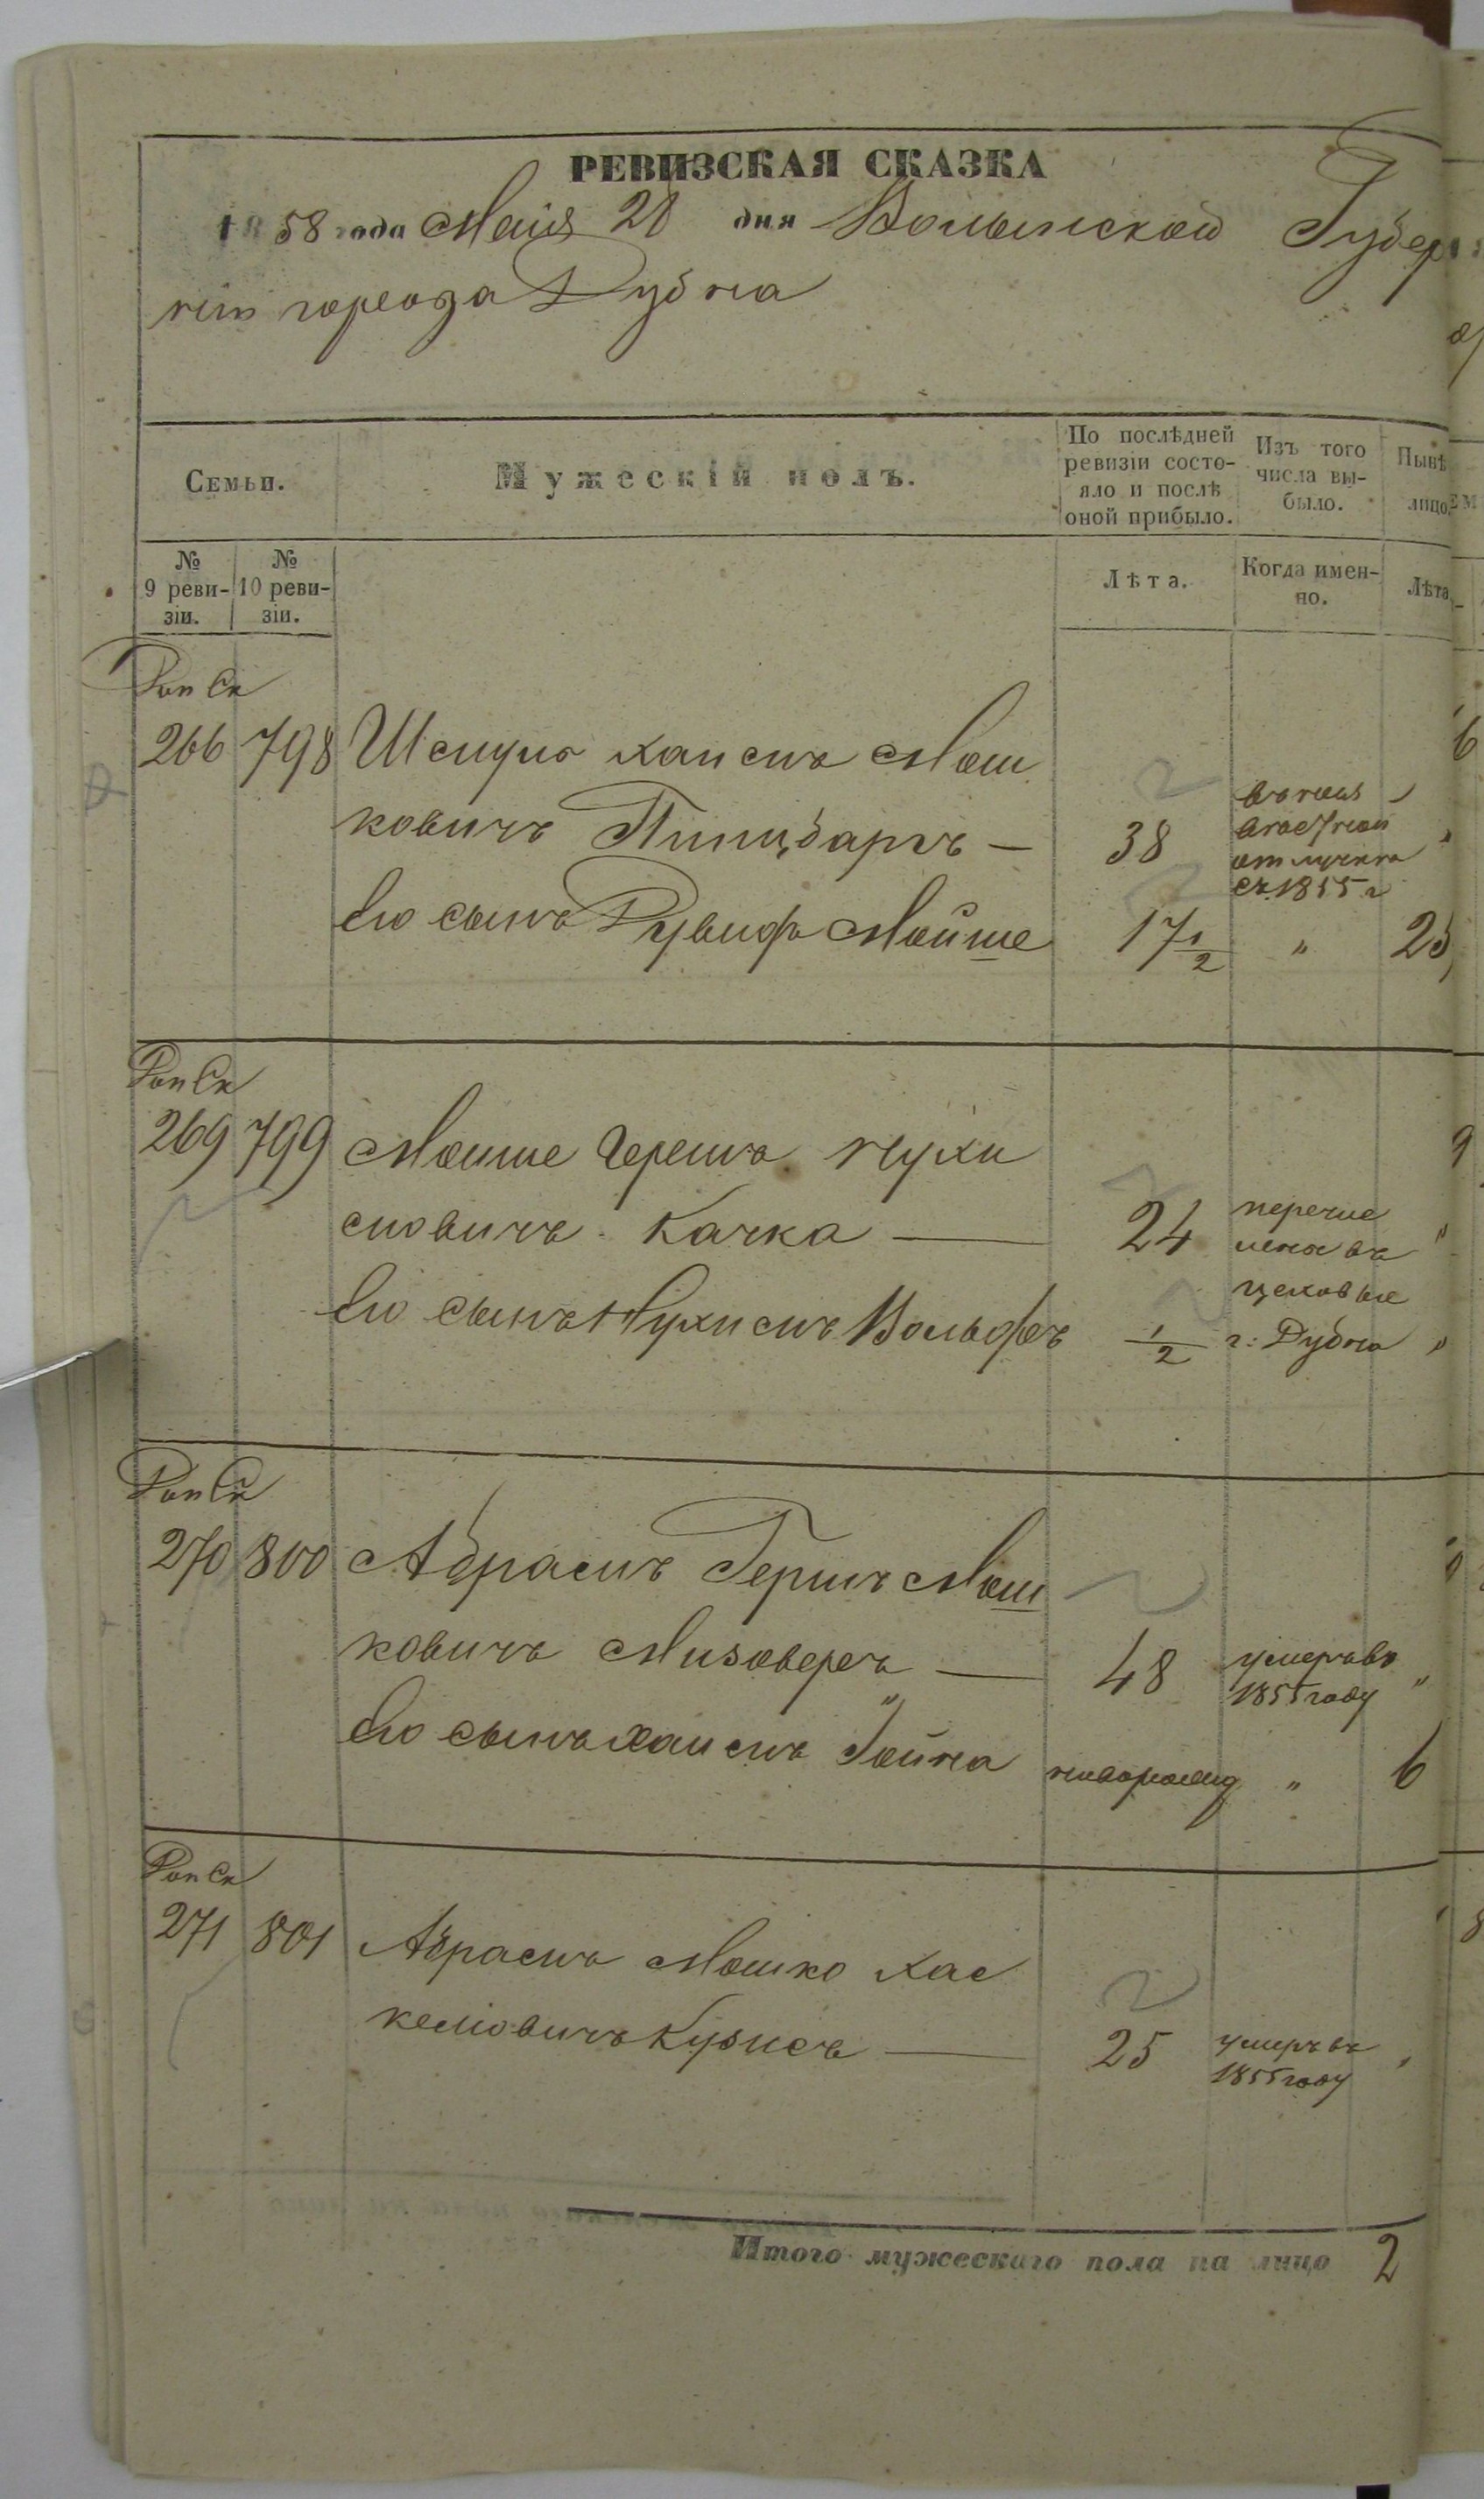 РЕВИЗСКАЯ СКАЗКА
1858 года Маія 28 дня Волынской Губер
ніи города Дубна
Семьи.
Мужескій полъ.
По послѣдней ревизіи состо-
яло и послѣ оной прибыло.
Изъ того числа вы-
было.
Нынѣ лицо
№ 9 реви-
зіи.
№ 10 реви-
зіи.
Лѣта.
Когда имен-
но.
Лѣта
266 798 Шмуль Хаимъ Мош
ковичъ 38
отлучкѣ
съ 1855 г
Его сынъ Рувинъ Мойше 17 1/2 " 25
269 799 Мойше Гершъ Нухи
мовичъ Качка — 24 перечис
лены въ
цеховые
Его сынъ Нухимъ Вольфъ 1/2 г: Дубна "
270 800 Абрамъ Гершъ Мош
ковичъ Мизоверъ — 48 умеръ въ
1855 году "
Его сынъ Хаимъ Іойна новорожд " 6
271 801 Абрамъ Мошко Хас
келіовичъ Кузисъ — 25 умеръ въ
1855 году
Итого мужескаго пола на лицо 2